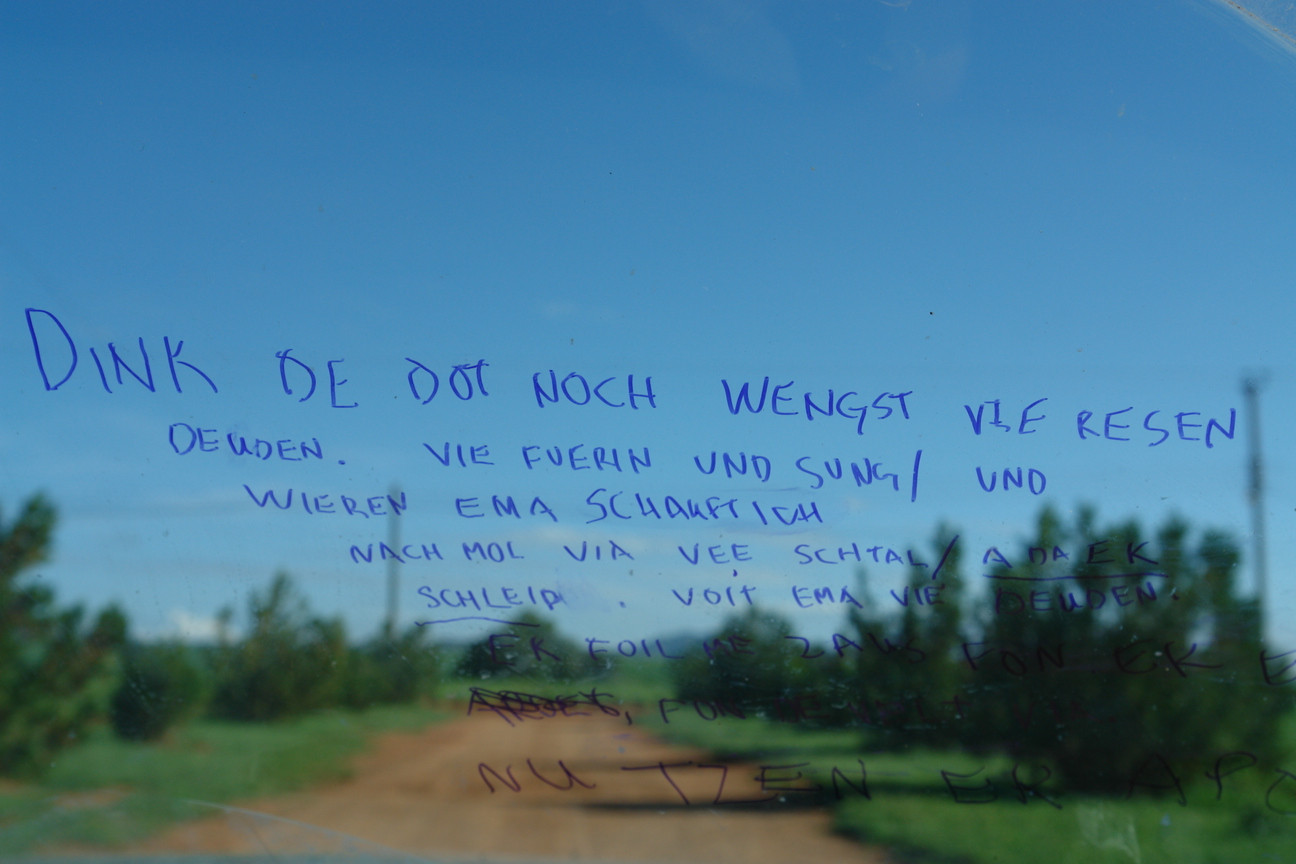 DINK DE DOT NOCH WENGST VIE RESEN
DEUDEN. VIE FUERIN UND SUNG/ UND
WIEREN EMA SCHAUFTICH
NACH MOL VIA VEE SCHTAL/ ADA EK
SCHLEIP. VOIT EMA VIE DEUDEN.
EK FOIL ME ZAWS FON EK
FON
NU TZEN ER APO